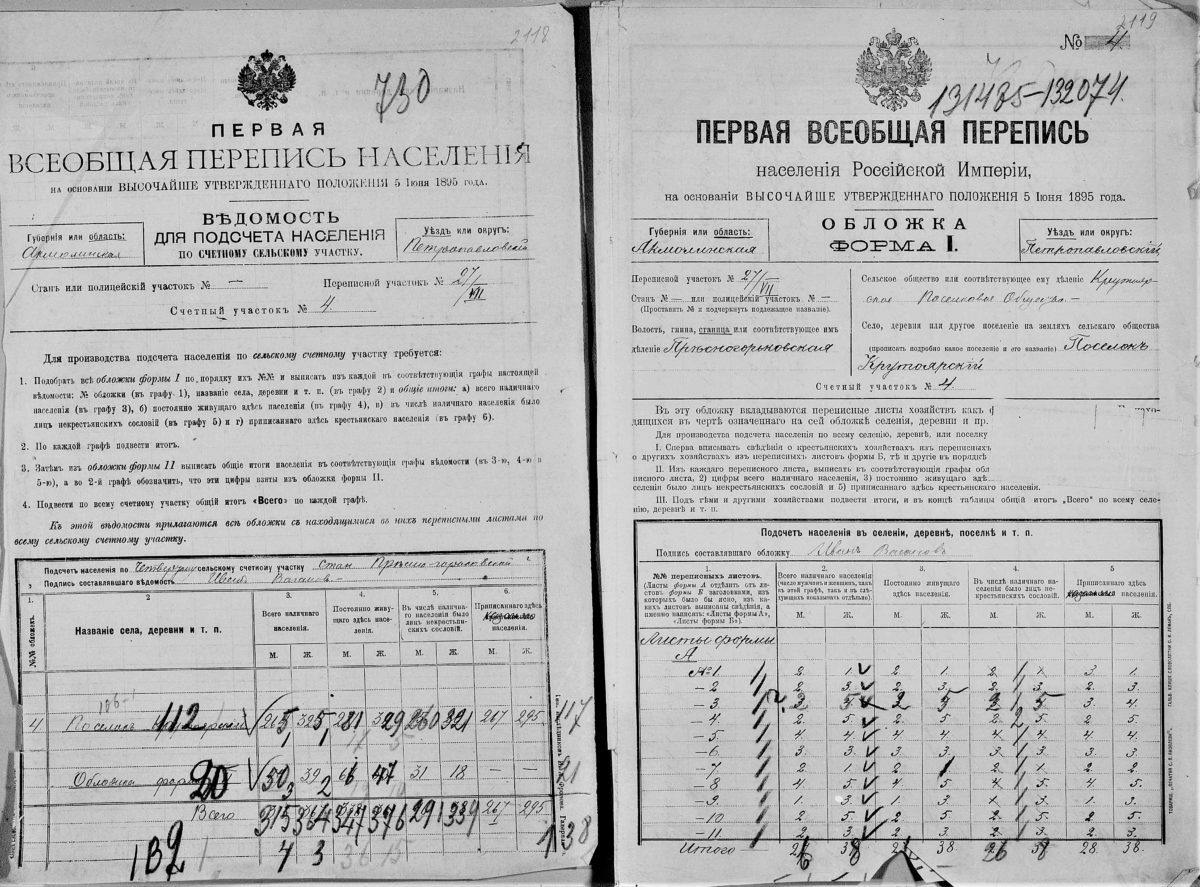 2118
730
ПЕРВАЯ
ВСЕОБЩАЯ ПЕРЕПИСЬ НАСЕЛЕНІЯ
НА ОСНОВАНІИ ВЫСОЧАЙШЕ УТВЕРЖДЕННАГО ПОЛОЖЕНІЯ 5 Іюня 1895 года.
Губернія или область:
Акмолинская
ВѢДОМОСТЬ
ДЛЯ ПОДСЧЕТА НАСЕЛЕНІЯ
ПО СЧЕТНОМУ СЕЛЬСКОМУ УЧАСТКУ.
Уѣздъ или округъ:
Петропавловскій
Станъ или полицейскій участокъ № —
Переписной участокъ № 27/VII
Счетный участокъ № 4.
Для производства подсчета населенія по сельскому счетному участку требуется:
1. Подобрать всѣ обложки формы I по порядку ихъ №№ и выписать изъ каждой въ соотвѣтствующія графы настоящей
вѣдомости: № обложки (въ графу 1), названіе села, деревни и т. п. (въ графу 2) и общіе итоги: а) всего наличнаго
населенія (въ графу 3), б) постоянно живущаго здѣсь населенія (въ графу 4), в) въ числѣ наличнаго населенія было
лицъ некрестьянскихъ сословій (въ графу 5) и г) приписаннаго здѣсь крестьянскаго населенія (въ графу 6).
2. По каждой графѣ подвести итогъ.
3. Затѣмъ изъ обложки формы II выписать общіе итоги населенія въ соотвѣтствующія графы вѣдомости (въ 3-ю, 4-ю и
5-ю), а во 2-й графѣ обозначить, что эти цифры взяты изъ обложки формы II.
4. Подвести по всему счетному участку общій итогъ «Всего» по каждой графѣ.
Къ этой вѣдомости прилагаются всѣ обложки съ находящимися въ нихъ переписными листами по
всему сельскому счетному участку.
Подсчетъ населенія по Четвертому сельскому счетному участку Стан
Подпись составлявшаго вѣдомость
1. 2 3. 4. 5. 6.
№№ обложекъ.
Названіе села, деревни и т. п.
Всего наличнаго населенія.
Постоянно живущаго здѣсь населенія.
Въ числѣ наличнаго населенія было лицъ некрестьянскихъ сословій.
Приписаннаго здѣсь населенія.
М. Ж. М. Ж. М. Ж. М. Ж.
4 Поселокъ 112 321 267 295 117
Обложка формы 30 39 47 31 18 — — 21
Всего 315 364 347 376 291 339 267 295 138
4 3 36 15
2119
№ 4
131485-132074.
ПЕРВАЯ ВСЕОБЩАЯ ПЕРЕПИСЬ
населенія Россійской Имперіи,
на основаніи ВЫСОЧАЙШЕ УТВЕРЖДЕННАГО ПОЛОЖЕНІЯ 5 Іюня 1895 года.
Губернія или область:
Акмолинская
ОБЛОЖКА
ФОРМА I.
Уѣздъ или округъ:
Петропавловскій
Переписной участокъ № 27/VII
Станъ № — или полицейскій участокъ № —
(Проставить № и подчеркнуть подлежащее названіе).
Волость, гмина, станица или соотвѣтствующее имъ
дѣленіе Прѣсногорьковская
Сельское общество или соотвѣтствующее ему дѣленіе Крутояр-
ское Поселковое Общество —
Село, деревня или другое поселеніе на земляхъ сельскаго общества
(прописать подробно какое поселеніе и его названіе) Поселокъ
Крутоярскій
Счетный участокъ № 4.
Въ эту обложку вкладываются переписные листы хозяйствъ как
дящихся въ чертѣ означеннаго на сей обложкѣ селенія, деревни и пр.
Для производства подсчета населенія по всему селенію, деревнѣ, или поселку
I. Сперва вписывать свѣдѣнія о крестьянскихъ хозяйствахъ изъ переписныхъ
о другихъ хозяйствахъ изъ переписныхъ листовъ формы Б, тѣ и другіе въ порядкѣ
II. Изъ каждаго переписного листа, выписать въ соотвѣтствующія графы
писного листа, 2) цифры всего наличнаго населенія, 3) постоянно живущаго здѣ
селенія было лицъ некрестьянскихъ сословій и 5) приписаннаго здѣсь крестьянскаго населенія.
III. Подъ тѣми и другими хозяйствами подвести итоги, и въ концѣ таблицы общій итогъ „Всего“ по всему селе-
нію, деревнѣ и т. п.
Подсчетъ населенія въ селеніи, деревнѣ, поселкѣ и т. п.
Подпись составлявшаго обложку Иванъ
1. 2. 3. 4. 5
№№ переписныхъ листовъ.
(Листы формы А отдѣлить отъ листовъ формы Б заголовками, изъ которыхъ было бы ясно, изъ какихъ листовъ выписаны свѣдѣнія, а именно написать: «Листы формы А», «Листы формы Б»).
Всего наличнаго населенія
Постоянно живущаго здѣсь населенія.
Въ числѣ наличнаго населенія было лицъ некрестьянскихъ сословій.
Приписаннаго здѣсь населенія.
М. Ж. М. Ж. М. Ж. М. Ж.
Листы формы
А
№ 1 2. 1. 2 1. 2. 1. 3. 1.
— 2 2. 3. 2. 3. 2. 3. 2. 3.
— 3 5 2 5 5 3. 4.
— 4. 2. 5. 2. 5. 2. 5. 2. 5.
— 5 4. 4. 4. 4. 4. 4. 4. 4.
— 6. 3. 3. 3. 3. 3. 3. 3. 3.
— 7 2. 1. 2 1. 2. 2.
— 8 4. 5. 4 5. 4. 5. 4. 5.
— 9 1. 3. 1. 3. 3. 1. 3.
— 10 2. 5. 2 5. 2. 5. 2. 5.
— 11 2. 3. 2. 3. 2. 3. 2. 3.
Итого — 38. 26 38 28. 38.